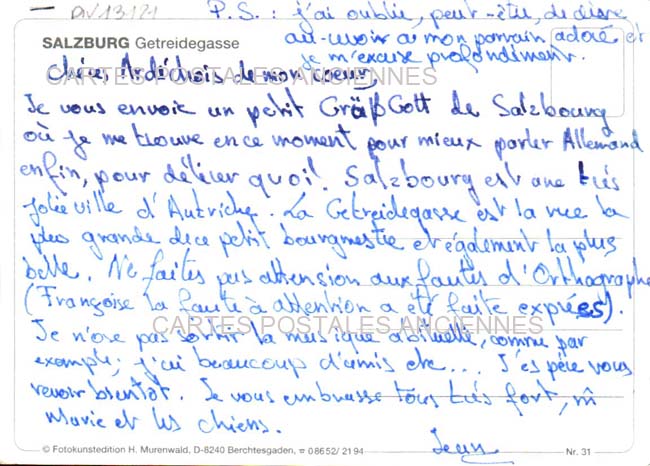 DIV 13121
P.S. : j'ai oublié, peut-être, de dire
au-revoir à mon parrain adoré et
je m'excuse profondiment.
SALZBURG Getreidegasse
Chers Ardéchois de mon coeur,
CARTES POSTALES ANCIENNES
Je vous envoie un petit Gräß Gott de Salzbourg
où je me trouve en ce moment pour mieux parler Allemand
enfin, pour délirer quoi! Salzbourg est une très
jolie ville d'Autriche. La Getreidegasse est la rue la
plus grande de ce petit bourgmestre et également la plus
belle. Ne faites pas attension aux fautes d'Orthographe
(Françoise la faute à attention a été faite exprées).
Je n'ose pas sortir la musique abituelle, comme par
CARTES POSTALES ANCIENNES
exemple; j'ai beaucoup d'amis etc... J'espère vous
revoir bientôt. Je vous embrasse tous très fort, m̂
Marie et les chiens.
Jean
© Fotokunstedition H. Murenwald, D-8240 Berchtesgaden, ☎ 08652/2194
Nr. 31